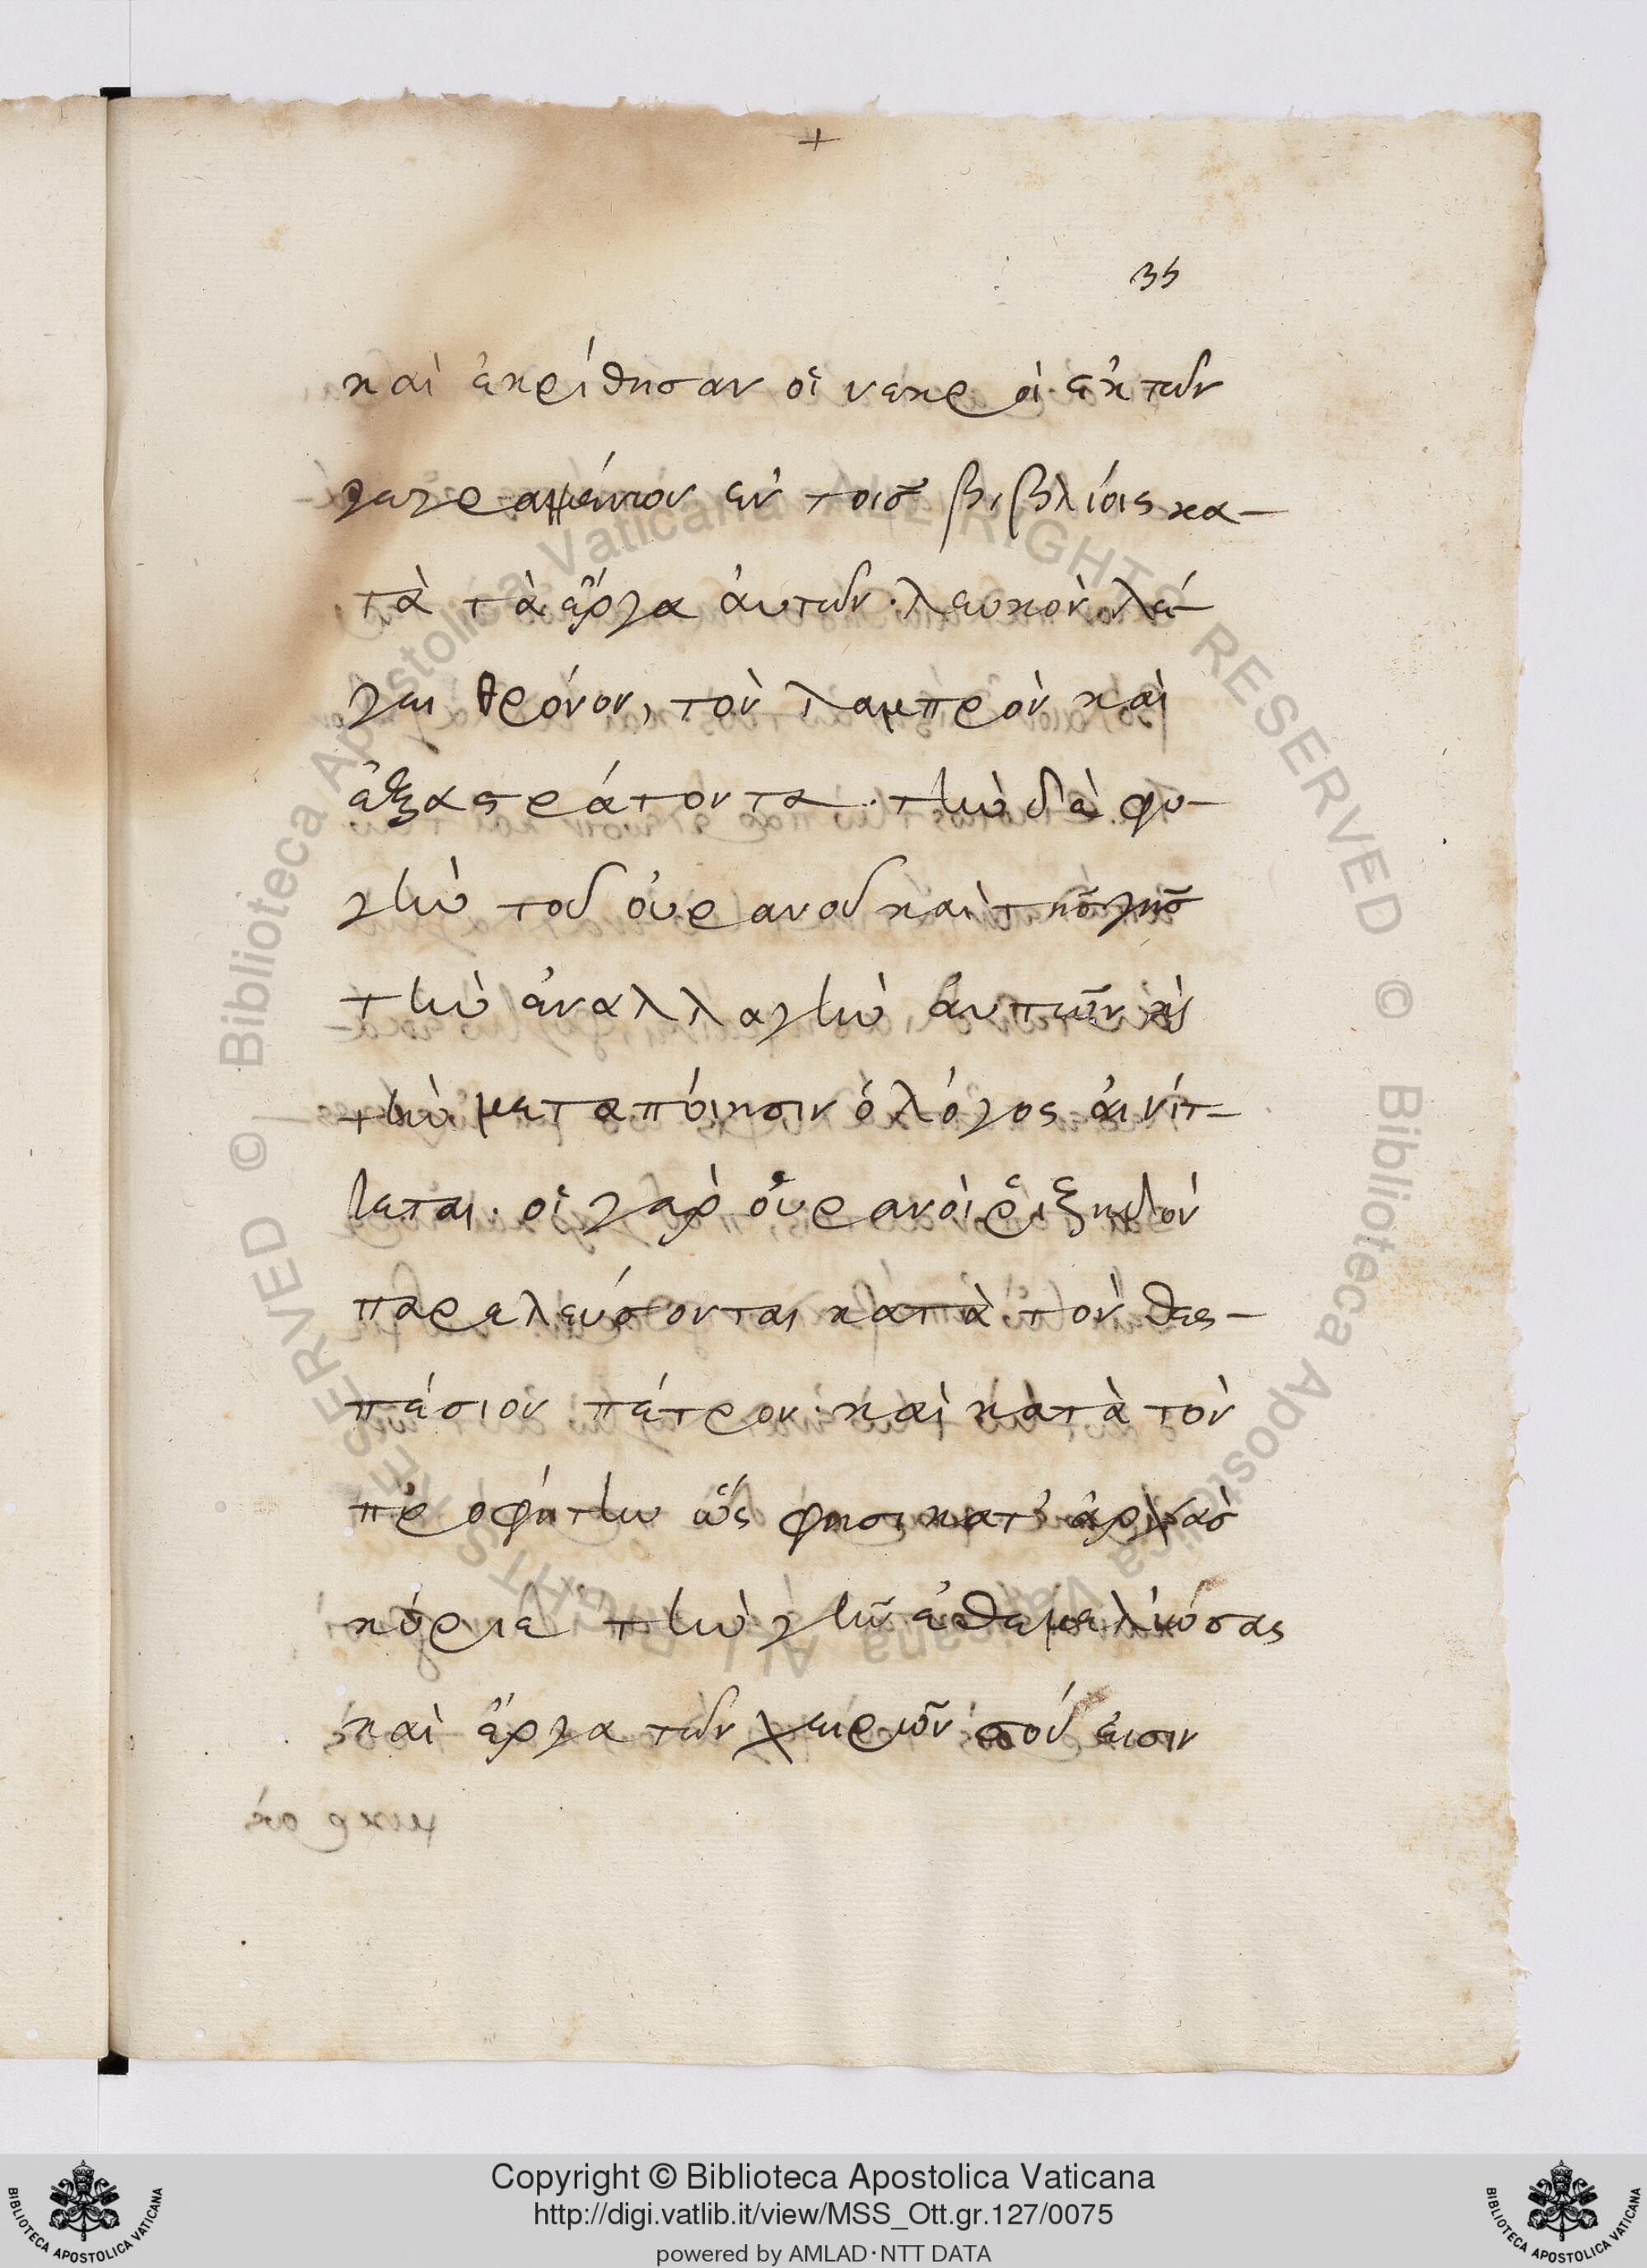 +
35
καὶ ἐκρίθησαν οἱ νεκροὶ ἐκ τῶν
γεγραμμένων ἐν τοῖς βιβλίοις κα-
τὰ τὰ ἔργα ἀυτῶν· λευκὸν λέ-
γει θρόνον, τὸν λαμπρὸν καὶ
ἐξαστράπτοντα· τὴν δὲ φυ-
γὴν τοῦ ὀυρανοῦ καὶ τῆς γῆς
τὴν ἐναλλαγὴν ἀυτῶν κὶ
τὴν μεταποίησιν ὁ λόγος ἀινίτ-
τεται· οἱ γὰρ ὀυρανοὶ ῥιξηδὸν
παρελεύσονται κατὰ τὸν θεσ-
πέσιον πέτρον· καὶ κατὰ τὸν
προφήτην ὥς φησι κατ' ἀρχὰς
κύριε τὴν γῆν ἐθεμελίωσας
καὶ ἔργα τῶν χειρῶν σού εἰσιν
Copyright © Biblioteca Apostolica Vaticana
http://digi.vatlib.it/view/MSS_Ott.gr.127/0075
powered by AMLAD·NTT DATA
BIBLIOTECA APOSTOLICA VATICANA
BIBLIOTECA APOSTOLICA VATICANA
© Biblioteca Apostolica Vaticana ALL RIGHTS RESERVED © Biblioteca Apostolica Vaticana ALL RIGHTS RESERVED